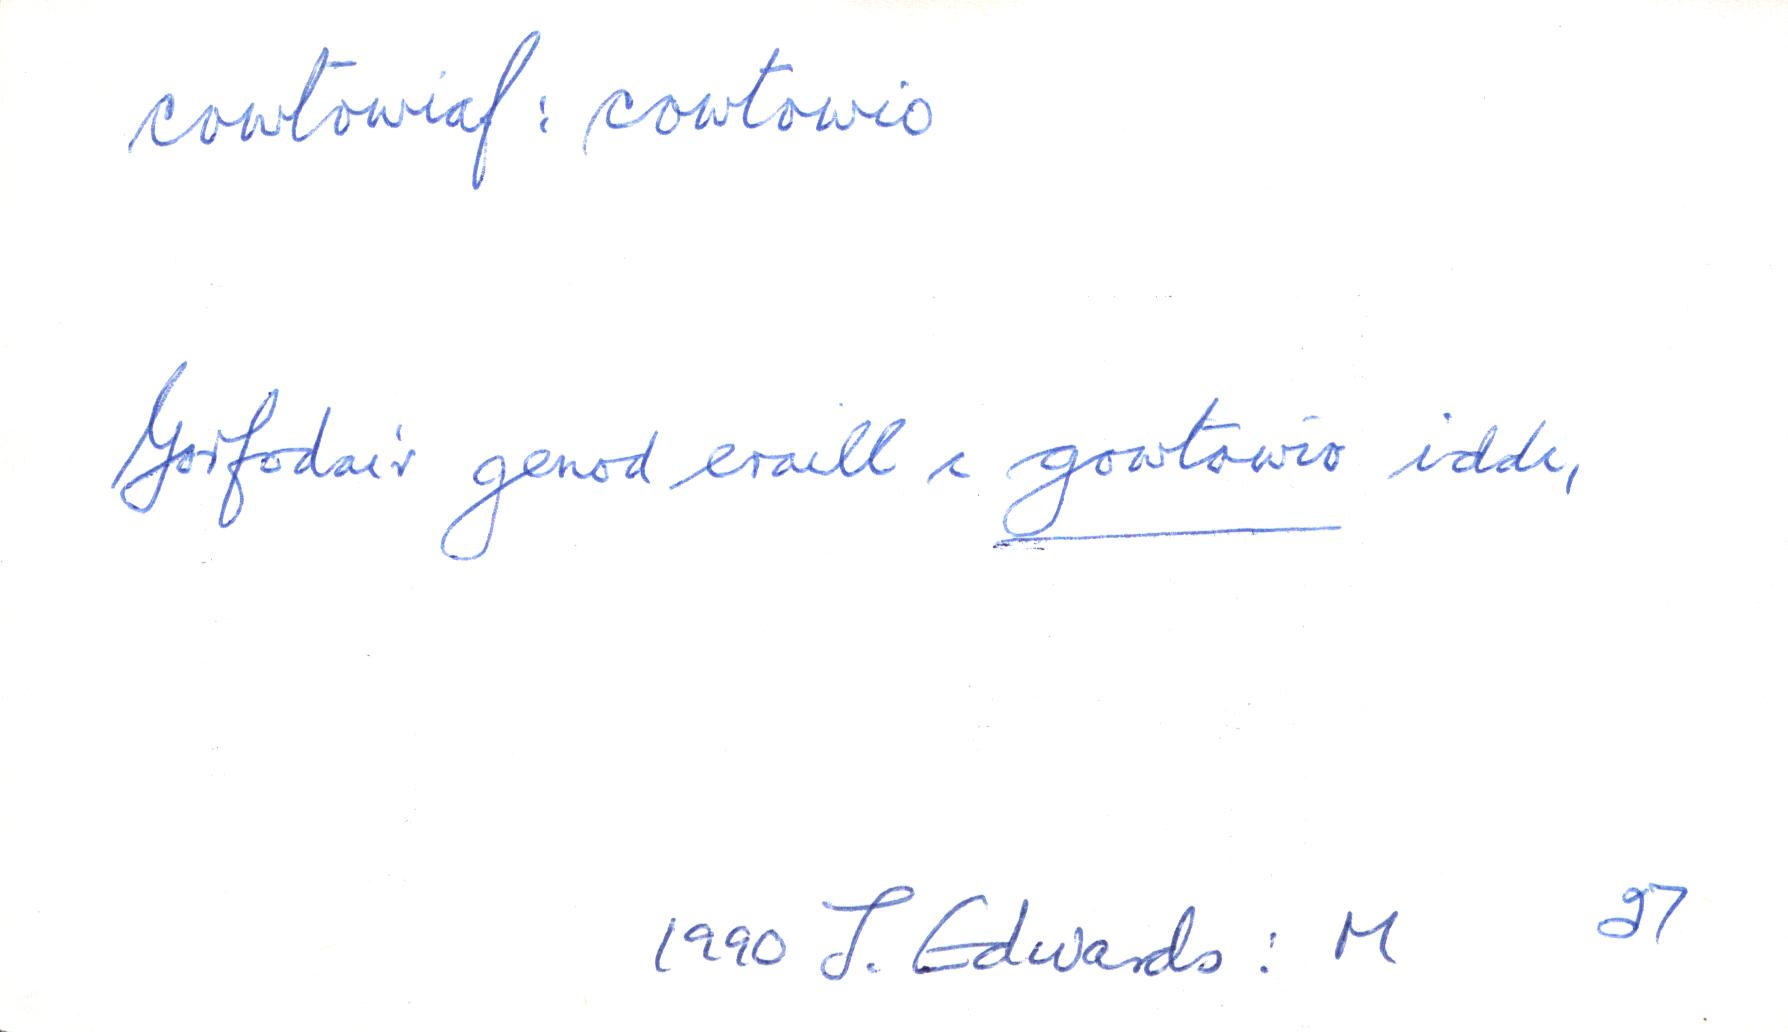 cowtowiaf: cowtowio
Gorfodai'r genod eraill i gowtowio iddi,
1990 J. Edwards: M 27